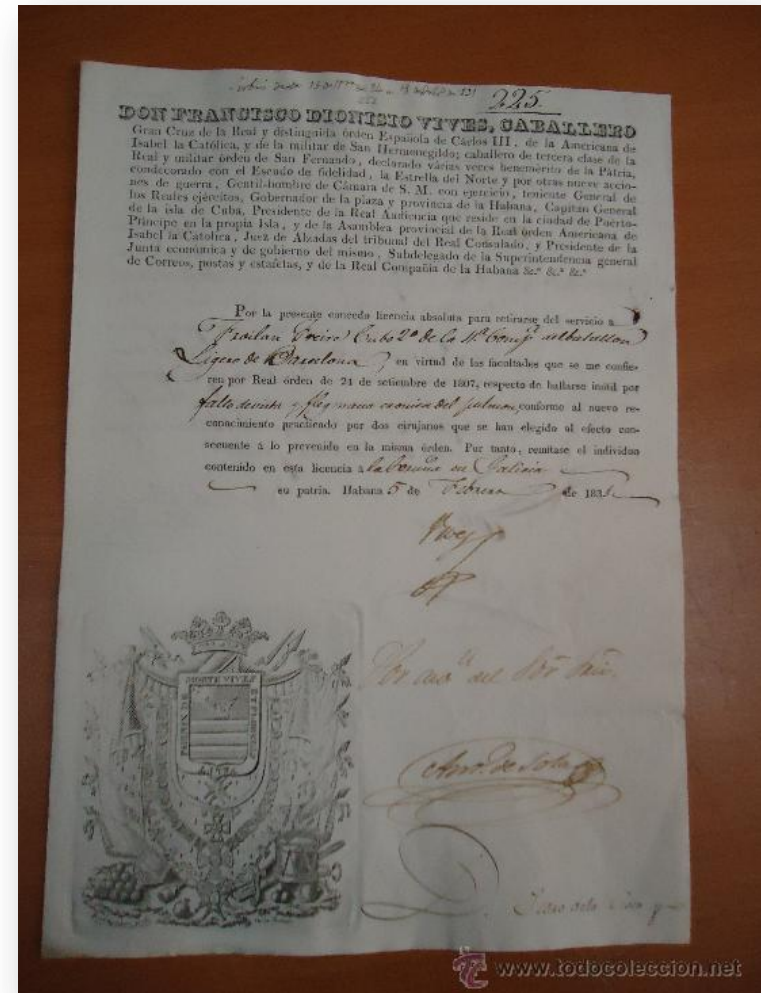 225.
DON FRANCISCO DIONISIO VIVES, CABALLERO
Gran Cruz de la Real y distinguida órden Española de Cárlos III, de la Americana de
Isabel la Católica, y de la militar de San Hermenegildo; caballero de tercera clase de la
Real y militar órden de San Fernando, declarado várias veces benemérito de la Pátria,
condecorado con el Escudo de fidelidad, la Estrella del Norte y por otras nueve accio-
nes de guerra, Gentil-hombre de Cámara de S. M. con ejercicio, teniente General de
los Reales ejércitos, Gobernador de la plaza y provincia de la Habana, Capitan General
de la isla de Cuba, Presidente de la Real Audiencia que reside en la ciudad de Puerto-
Príncipe en la propia Isla, y de la Asamblea provincial de la Real órden Americana de
Isabel la Católica, Juez de Alzadas del tribunal del Real Consulado, y Presidente de la
Junta económica y de gobierno del mismo, Subdelegado de la Superintendencia general
de Correos, postas y estafetas, y de la Real Compañía de la Habana &c.ª &c.ª &c.ª
Por la presente concedo licencia absoluta para retirarse del servicio a
Froilan Freiro Cabo 2º de la
Ligero de Barcelona, en virtud de las facultades que se me confie-
ren por Real órden de 21 de setiembre de 1807, respecto de hallarse inútil por
falto de vista y flegmacia cronica del pulmon, conforme al nuevo re-
conocimiento practicado por dos cirujanos que se han elegido al efecto con-
secuente á lo prevenido en la misma órden. Por tanto, remítase el individuo
contenido en esta licencia a la Coruña en Galicia
su patria. Habana 5 de Febrero de 183
Vives
Por del Sor
Anto. de Sola
MORTE VIVES
www.todocoleccion.net